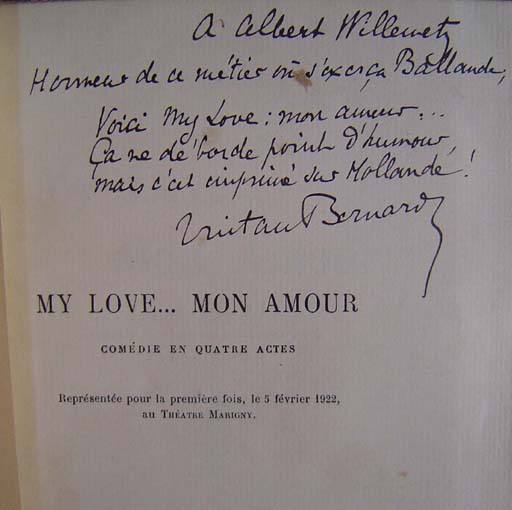 A Albert Willemetz
Honneur de ce métier où s'exerça Ballande,
Voici My Love : mon amour...
Ça ne déborde point d'humour,
mais c'est imprimé sur Hollande !
Tristan Bernard
MY LOVE... MON AMOUR
COMÉDIE EN QUATRE ACTES
Représentée pour la première fois, le 5 février 1922,
au Théatre Marigny.